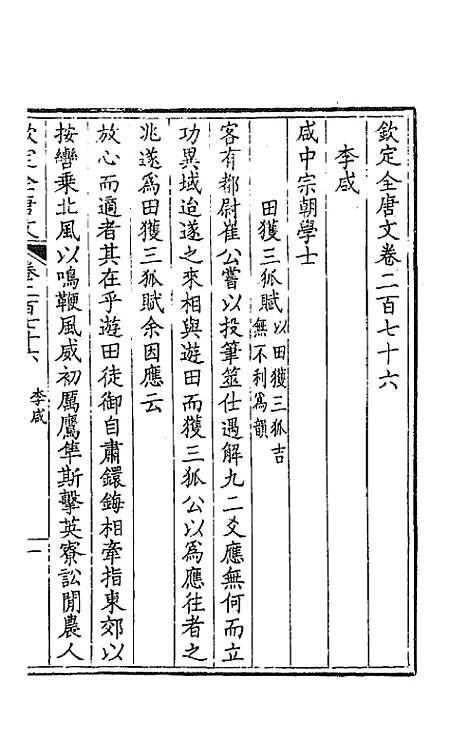 欽定全唐文卷二百七十六
李咸
咸中宗朝學士
田獲三狐賦以田獲三狐吉
無不利爲韻
客有都尉崔公嘗以投筆筮仕遇解九二爻應無何而立
功異域迨遂之來相與遊田而獲三狐公以爲應往者之
兆遂爲田獲三狐賦余因應云
放心而適者其在乎遊田徒御自肅鐶鋂相牽指東郊以
按轡乘北風以鳴鞭風威初厲鷹隼斯擊英寮訟閒農人
欽定全唐文 卷二百七十六 李咸 一